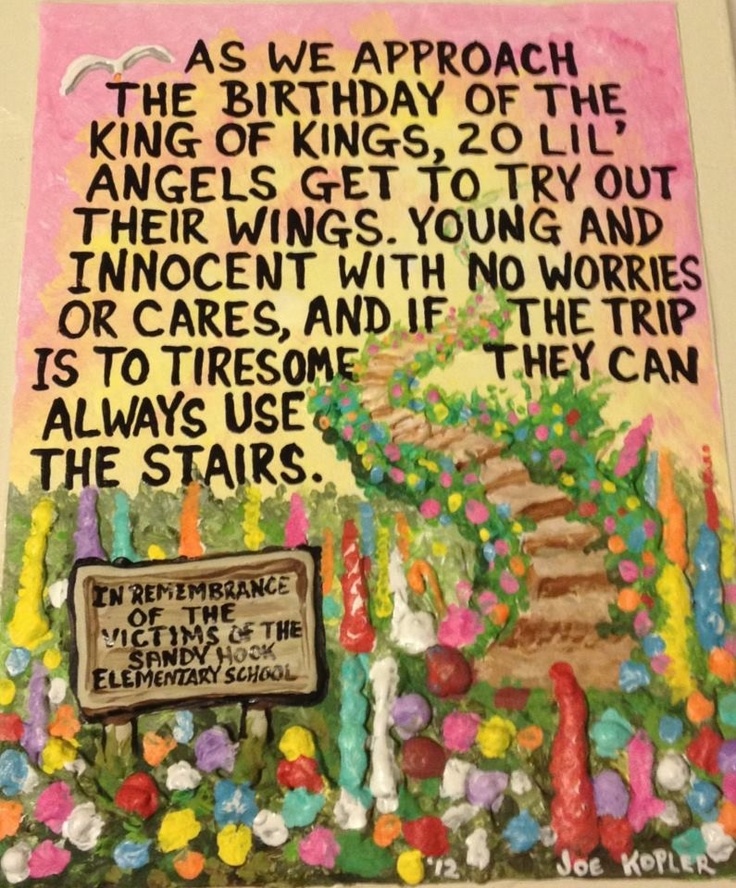 AS WE APPROACH
THE BIRTHDAY OF THE
KING OF KINGS, 20 LIL'
ANGELS GET TO TRY OUT
THEIR WINGS. YOUNG AND
INNOCENT WITH NO WORRIES
OR CARES, AND IF THE TRIP
IS TO TIRESOME THEY CAN
ALWAYS USE
THE STAIRS.
IN REMEMBRANCE
OF THE
VICTIMS OF THE
SANDY HOOK
ELEMENTARY SCHOOL
'12 JOE KOPLER